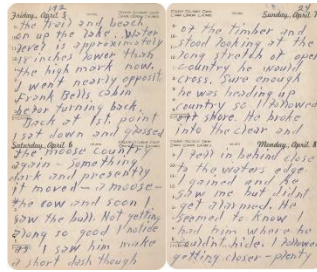 142
Friday, April 5
the trail and headed
on up the lake. Water
level is approximately
18 inches lower than
the high mark now.
I went nearly opposit
Frank Bells cabin
before turning back.
Back at 1st. point
I sat down and glassed
Saturday, April 6
the moose country
again - Something
dark and presently
it moved - a moose -
the cow and soon I
saw the bull. Not getting
along so good I notice
as I saw him make
a short dash though
Sunday, April 7
of the timber and
stood looking at the
long stretch of open
country he would
cross. Sure enough
he was heading up
country so I followed
at shore. He broke
into the clear and
Monday, April 8
I fell in behind close
to the waters edge.
I gained and he
saw me but didnt
get alarmed. He
seemed to know I
had him where he
couldnt hide. I followed
getting closer - plenty